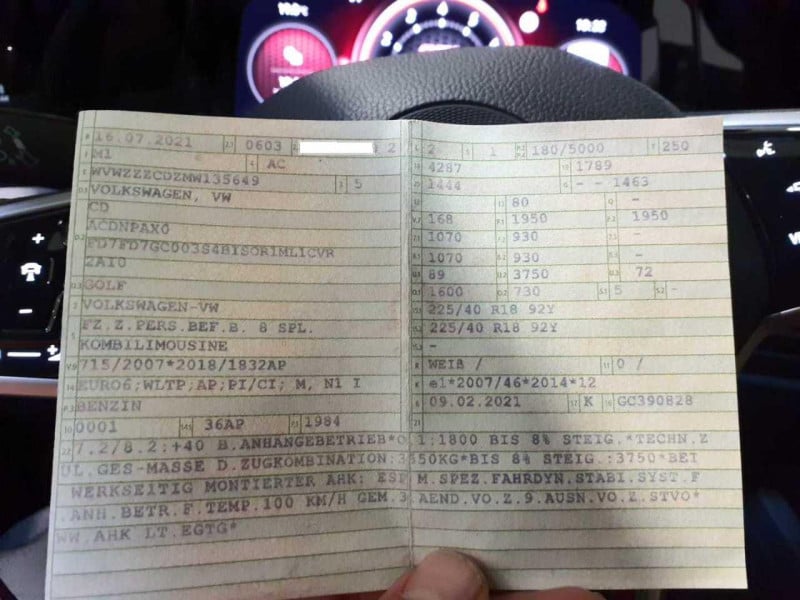 16.07.2021 0603 2
M1 AC
WVWZZZCDZMW135649 5
VOLKSWAGEN, VW
CD
ACDNPAX0
FD7FD7GC003S4BISOR1ML1CVR
2A10
GOLF
VOLKSWAGEN-VW
FZ.Z.PERS.BEF.B. 8 SPL.
KOMBILIMOUSINE
715/2007*2018/1832AP
EURO6;WLTP;AP;PI/CI; M, N1 I
BENZIN
0001 36AP 1984
2 1 180/5000 250
4287 1789
1444 - - 1463
80 -
168 1950 1950
1070 930 -
1070 930 -
89 3750 72
1600 730 5 -
225/40 R18 92Y
225/40 R18 92Y
-
WEIß / 0 /
e1*2007/46*2014*12
09.02.2021 K GC390828
7.2/8.2:+40 B.ANHÄNGEBETRIEB*O.1:1800 BIS 8% STEIG.*TECHN.Z
UL.GES-MASSE D.ZUGKOMBINATION:3550KG*BIS 8% STEIG.:3750*BET
WERKSEITIG MONTIERTER AHK: ESP M.SPEZ.FAHRDYN.STABI.SYST.F
.ANH.BETR.F.TEMP.100 KM/H GEM.3.AEND.VO.Z.9.AUSN.VO.Z.STVO*
WW.AHK LT.EGTG*